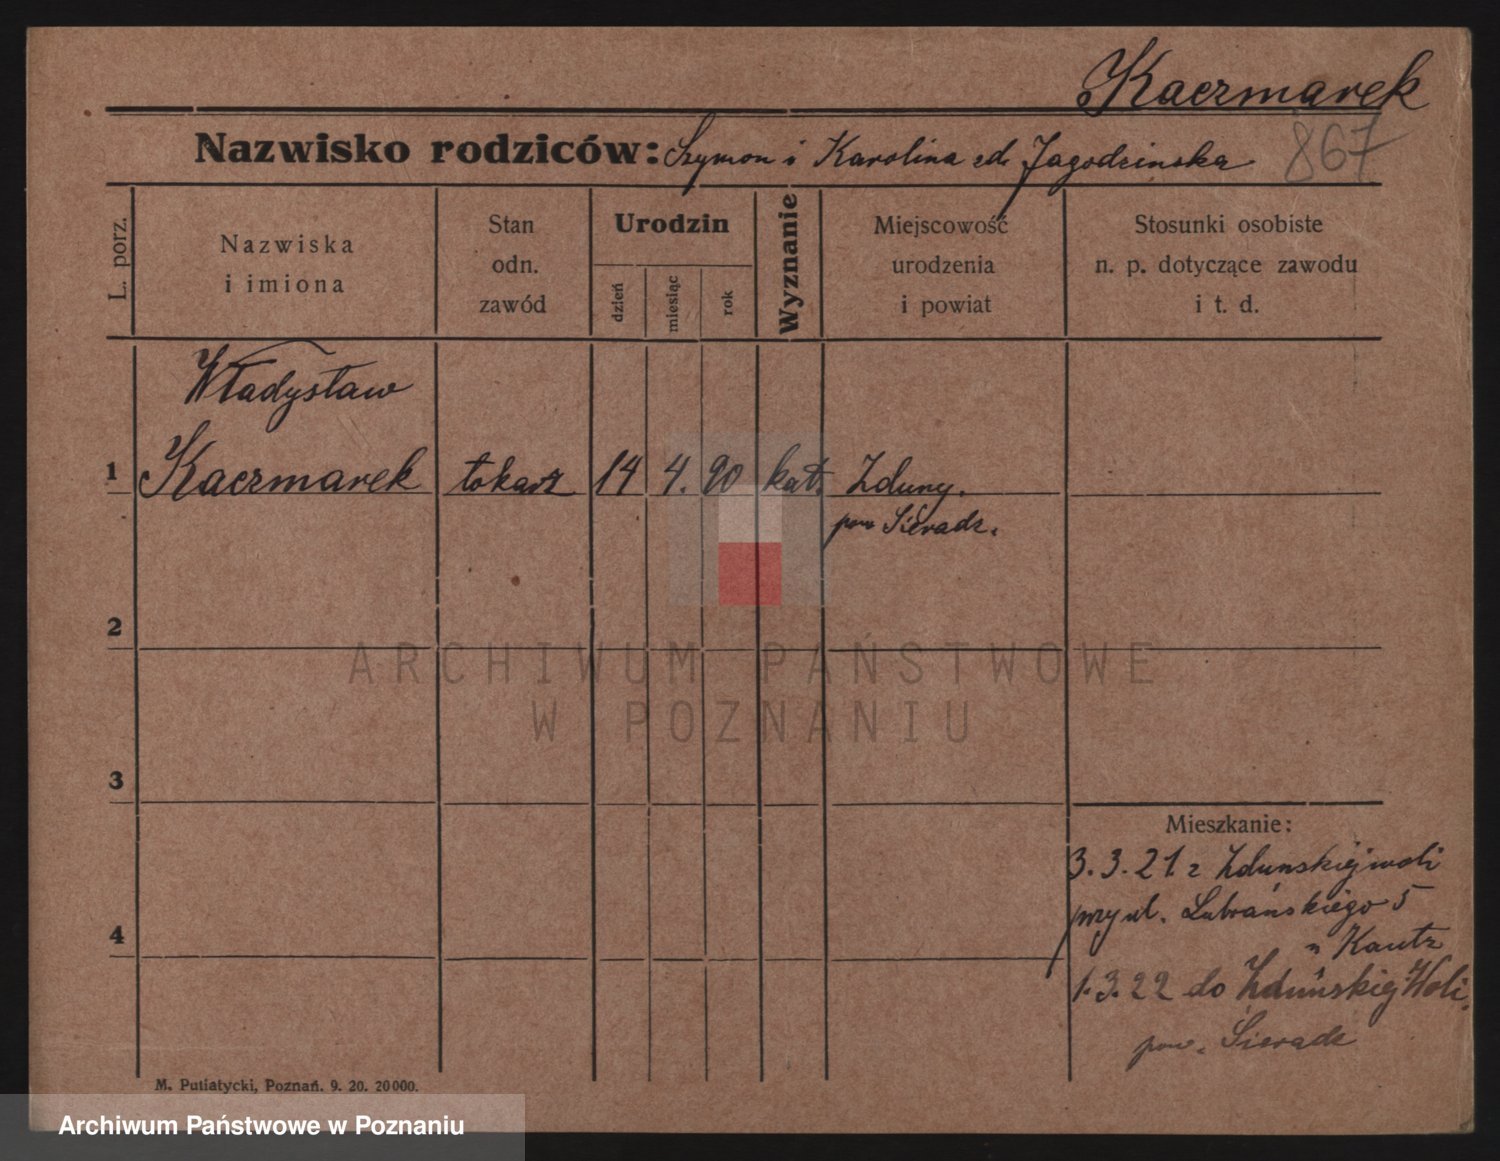 Kaczmarek
Nazwisko rodziców: Szymon i Karolina zd. Jagodzinska
867
L. porz.
Nazwiska
i imiona
Stan
odn.
zawód
Urodzin
dzień
miesiąc
rok
Wyznanie
Miejscowość
urodzenia
i powiat
Stosunki osobiste
n. p. dotyczące zawodu
i t. d.
Władysław
1 Kaczmarek tokarz 14 4. 90 kat. Zduny.
pow Sieradz.
2
ARCHIWUM PAŃSTWOWE
W POZNANIU
3
Mieszkanie:
3.3.21. z Zdunskiejwoli
przy ul. Lubrańskiego 5
4
u Kautz
1.3.22 do Zduńskiej Woli.
pow. Sieradz
M. Putiatycki, Poznań. 9. 20. 20000.
Archiwum Państwowe w Poznaniu